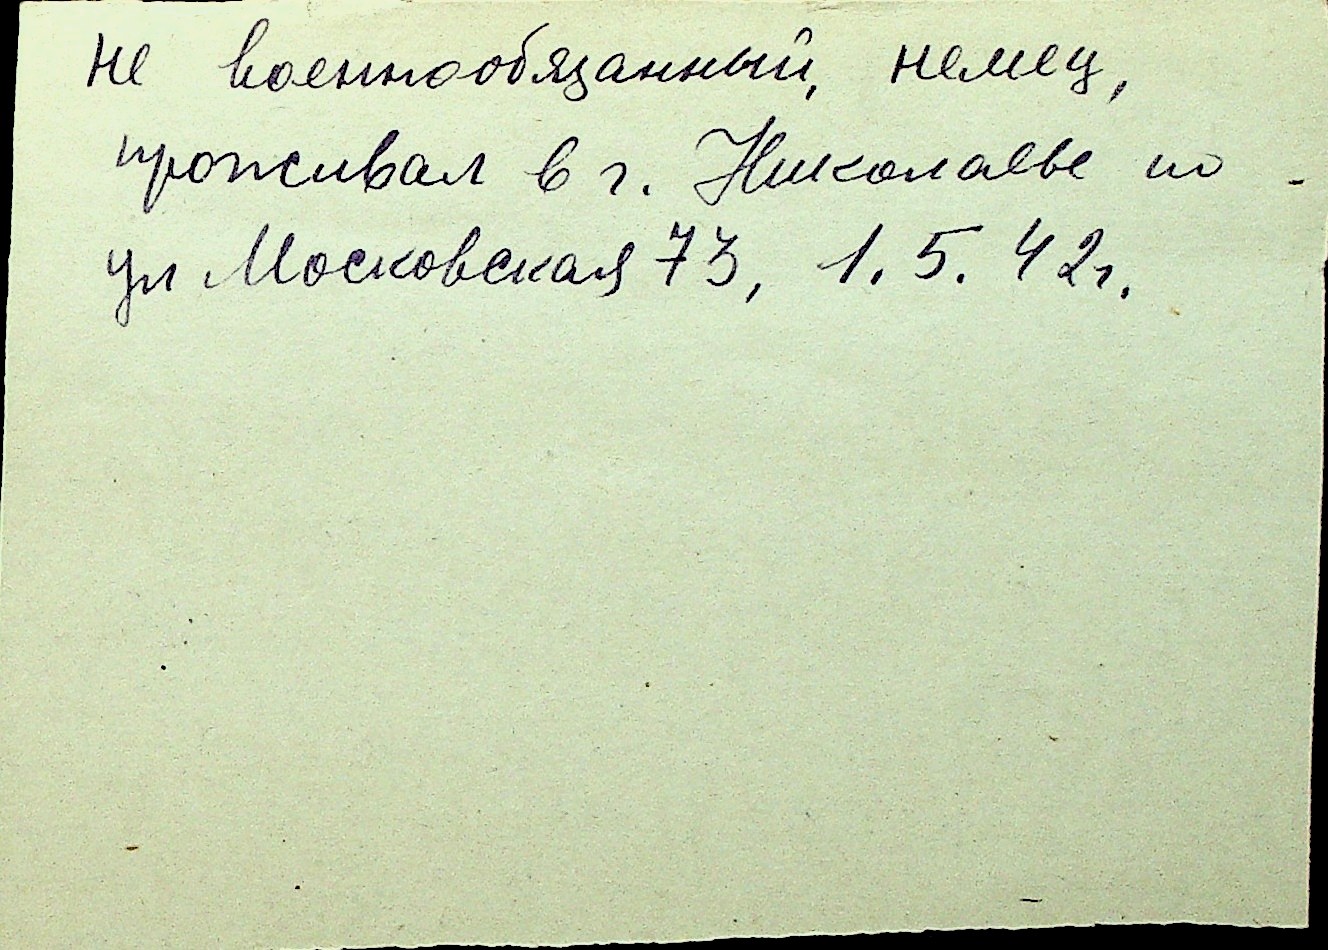 не военнообязанный, немец,
проживал в г. Николаеве по
ул Московская 73, 1.5.42г.